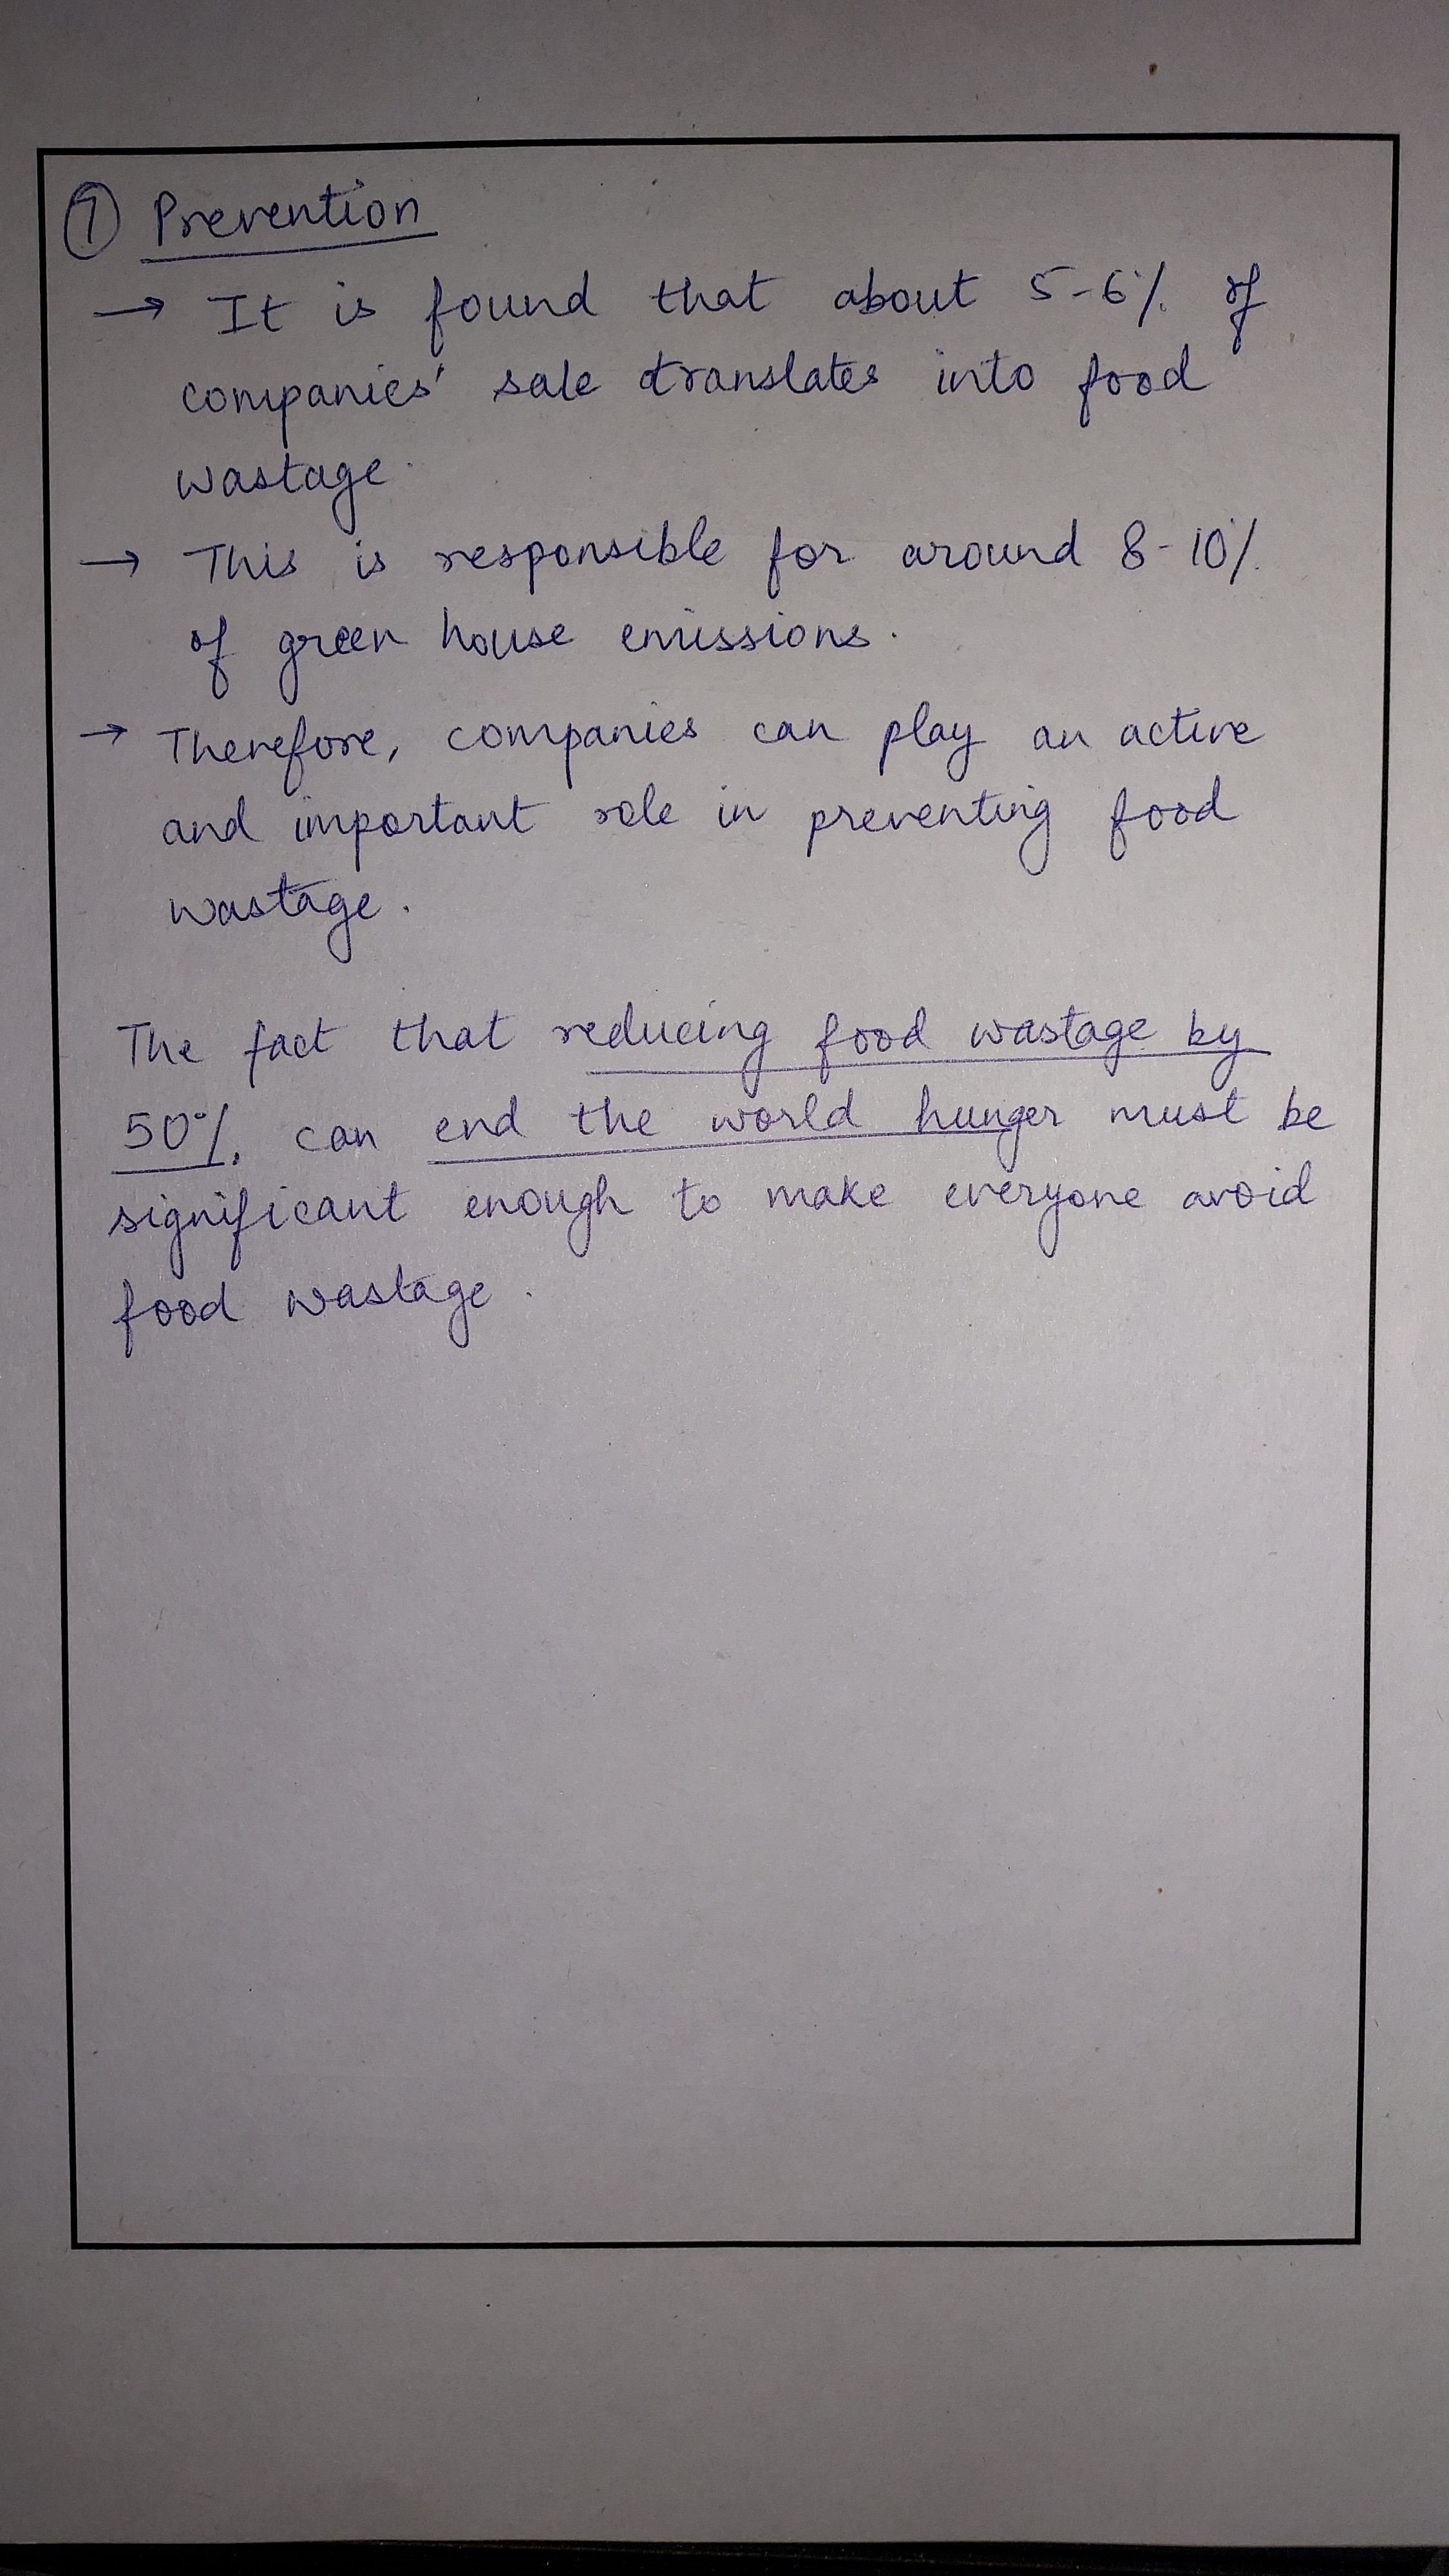 ⑦ Prevention
→ It is found that about 5-6% of
companies' sale translates into food
wastage.
→ This is responsible for around 8-10%
of green house emissions.
→ Therefore, companies can play an active
and important role in preventing food
wastage.
The fact that reducing food wastage by
50% can end the world hunger must be
significant enough to make everyone avoid
food wastage.